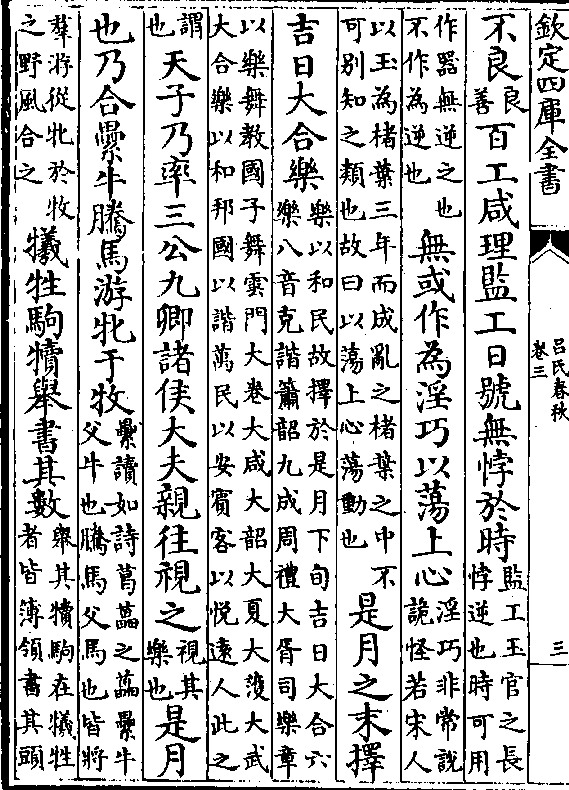 欽定四庫全書
吕氏春秋
卷三
三
不良良善百工咸理監工日號無悖於時監工玉官之長悖逆也時可用
作器無逆之也不作為逆也無或作為淫巧以蕩上心淫巧非常說詭怪若宋人
以玉為楮葉三年而成亂之楮葉之中不可别知之類也故曰以蕩上心蕩動也是月之末擇
吉日大合樂樂以和民故擇於是月下旬吉日大合六樂八音克諧簫韶九成周禮大胥司樂章
以樂舞教國子舞雲門大卷大咸大韶大夏大濩大武大合樂以和邦國以諧萬民以安賓客以悦逺人此之
謂也天子乃率三公九卿諸侯大夫親往視之視其樂也是月
也乃合纍牛騰馬游牝于牧纍讀如詩葛藟之藟纍牛父牛也騰馬父馬也皆將
羣游從牝於牧之野風合之犧牲駒犢舉書其數舉其犢駒在犧牲者皆簿領書其頭